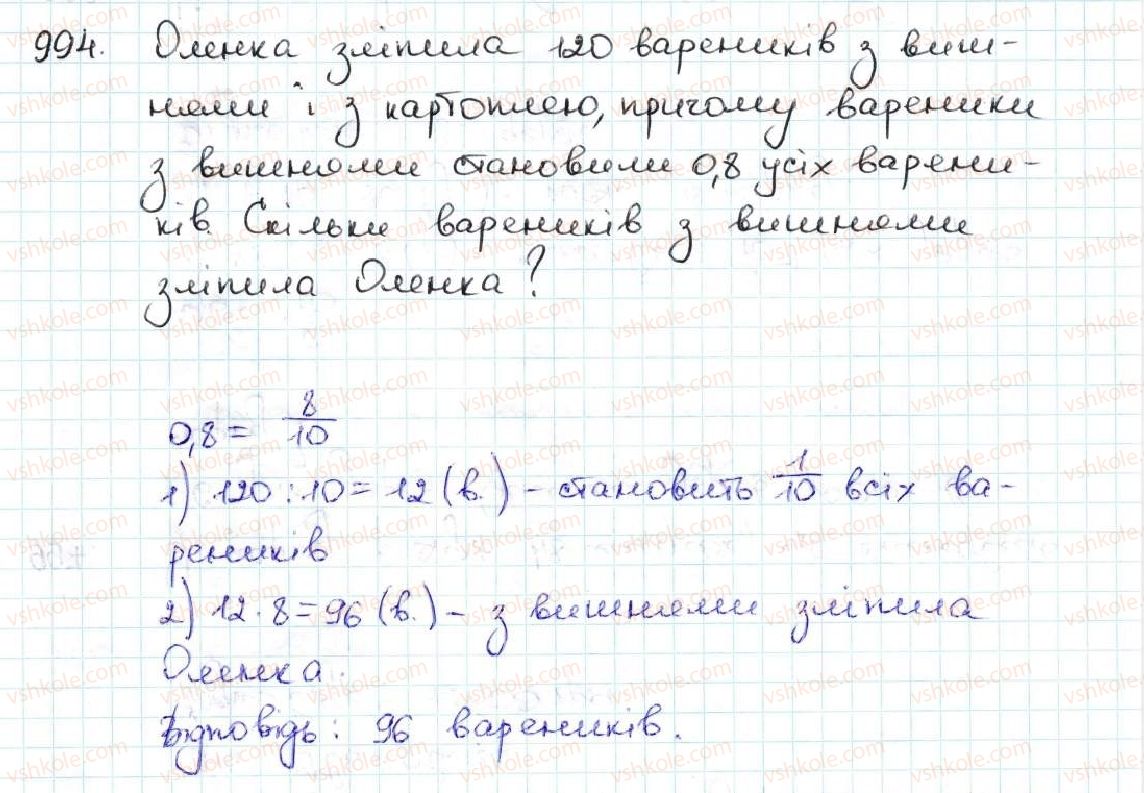 994. Оленка зліпила 120 вареників з виш-
нями і з картоплею, причому вареники
з вишнями становили 0,8 усіх варени-
ків. Скільки вареників з вишнями
зліпила Оленка?
0,8 = 8/10
1) 120 : 10 = 12 (в.) - становить 1/10 всіх ва-
реників
2) 12 · 8 = 96 (в.) - з вишнями зліпила
Оленка.
Відповідь: 96 вареників.